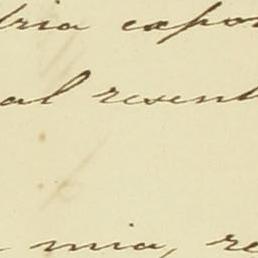 tria expo
al resent
mia, re